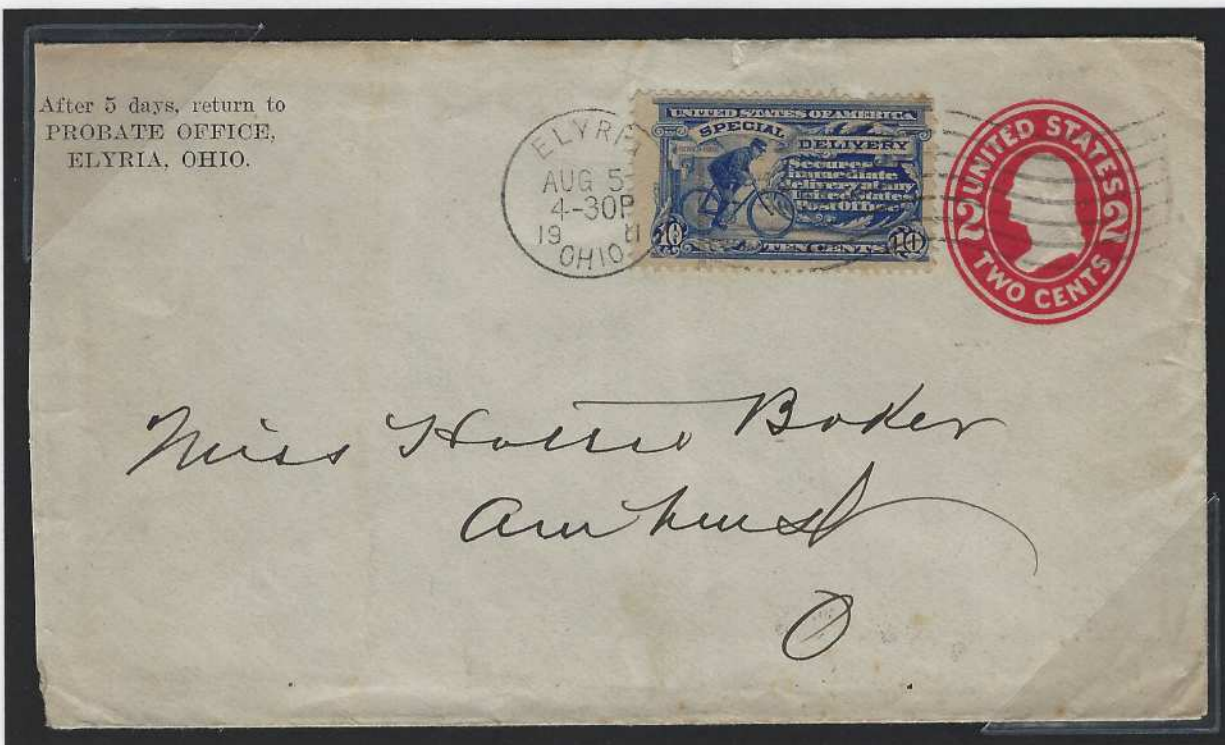 After 5 days, return to
PROBATE OFFICE,
ELYRIA, OHIO.
ELYRIA
AUG 5
4-30P
19
OHIO
UNITED STATES OF AMERICA
SPECIAL DELIVERY
Secures
immediate
delivery at any
United States
Post Office
10 TEN CENTS 10
UNITED STATES
2 2
TWO CENTS
Miss Hattie Baker
Amhurst
O